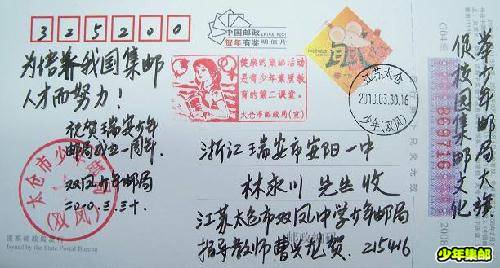 325200
中国邮政
贺年有奖
明信片
为培养我国集邮
人才而努力！
祝贺瑞安少年
邮局成立一周年
双凤少年邮局
2010.3.30
太仓市少年邮局
（双凤）
健康的集邮活动
是青少年素质教
育的第二课堂。
太仓市邮政局（宣）
江苏太仓
2010.03.30.16
少年（双凤）
浙江瑞安市安阳一中
林永川 先生 收
江苏太仓市双凤中学少年邮局
指导教师曹兴龙贺. 215416
国家邮政局发行
Issued by the State Postal Bureau
促校园集邮文化
少年集邮